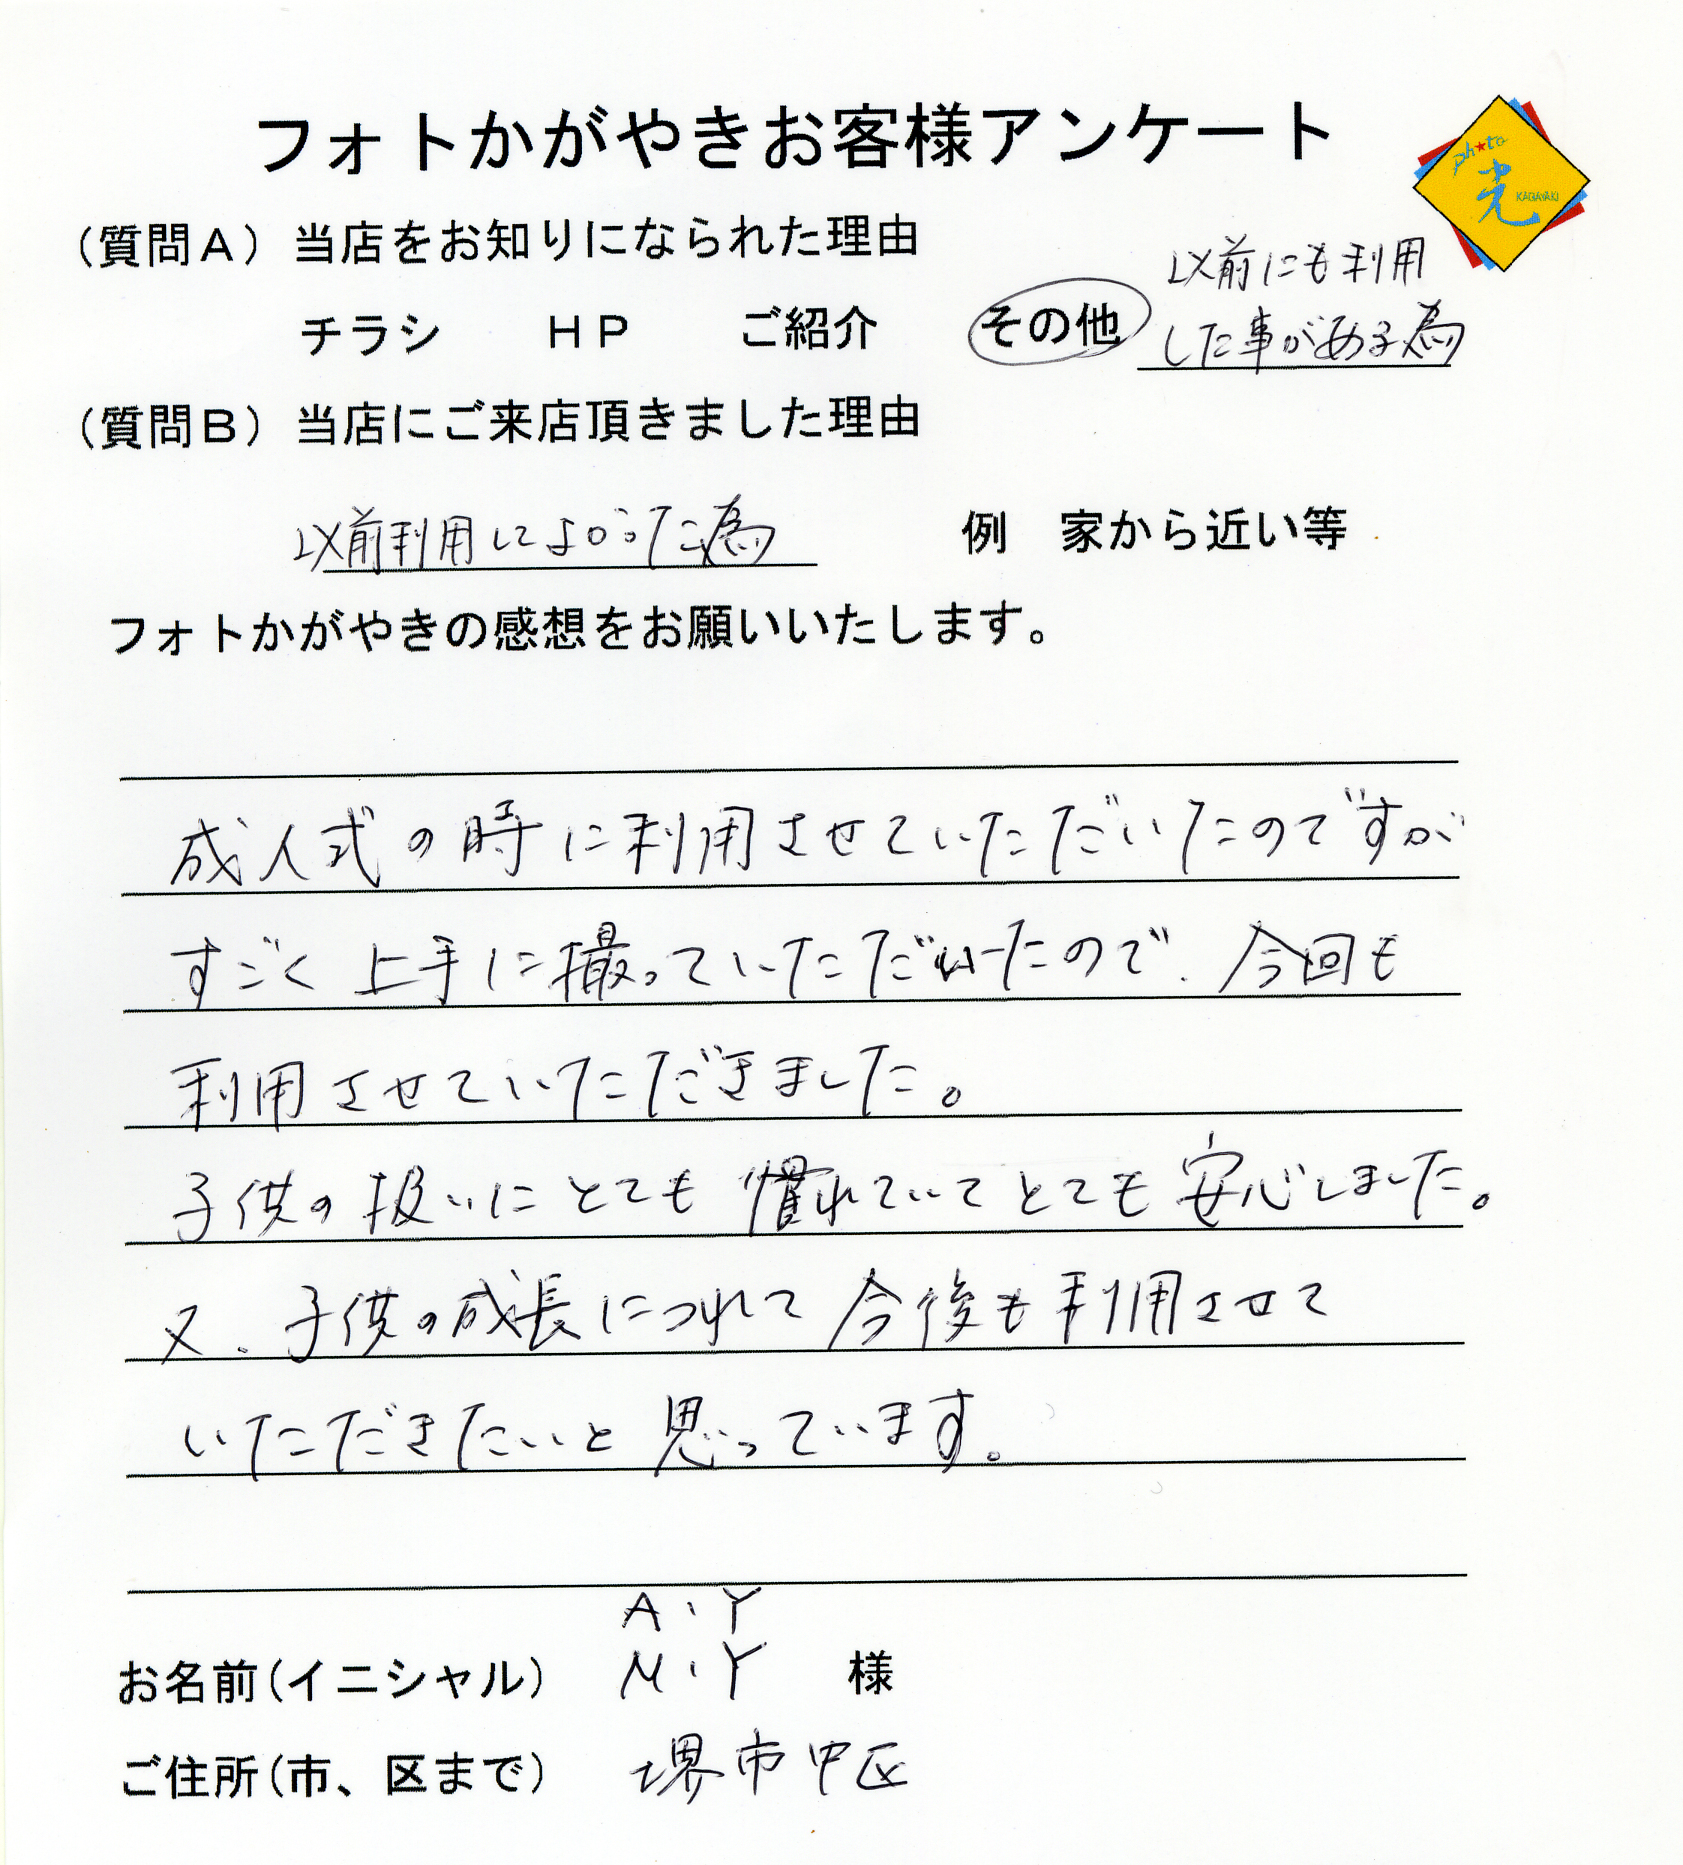 フォトかがやきお客様アンケート
ph★to
光
KAGAYAKI
（質問Ａ）当店をお知りになられた理由
以前にも利用
チラシ　ＨＰ　ご紹介　その他　した事がある為
（質問Ｂ）当店にご来店頂きました理由
以前利用してよかった為　例　家から近い等
フォトかがやきの感想をお願いいたします。
成人式の時に利用させていただいたのですが
すごく上手に撮っていただいたので、今回も
利用させていただきました。
子供の扱いにとても慣れていてとても安心しました。
又、子供の成長につれて今後も利用させて
いただきたいと思っています。
A・Y
お名前(イニシャル)　M・Y　様
ご住所(市、区まで)　堺市中区